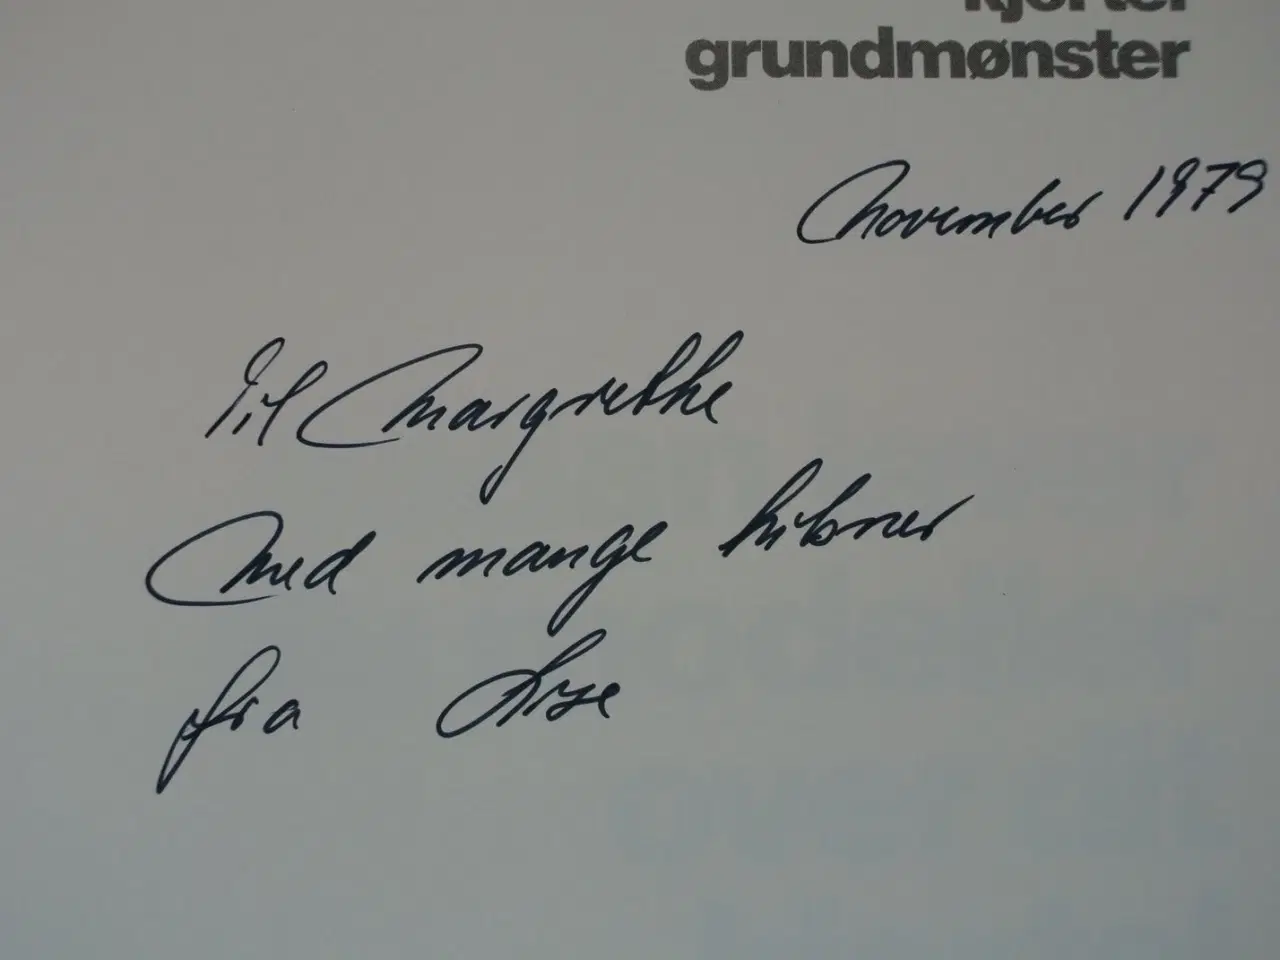 kjorter
grundmønster
November 1979
Til Margrethe
Med mange hilsner
fra Aase